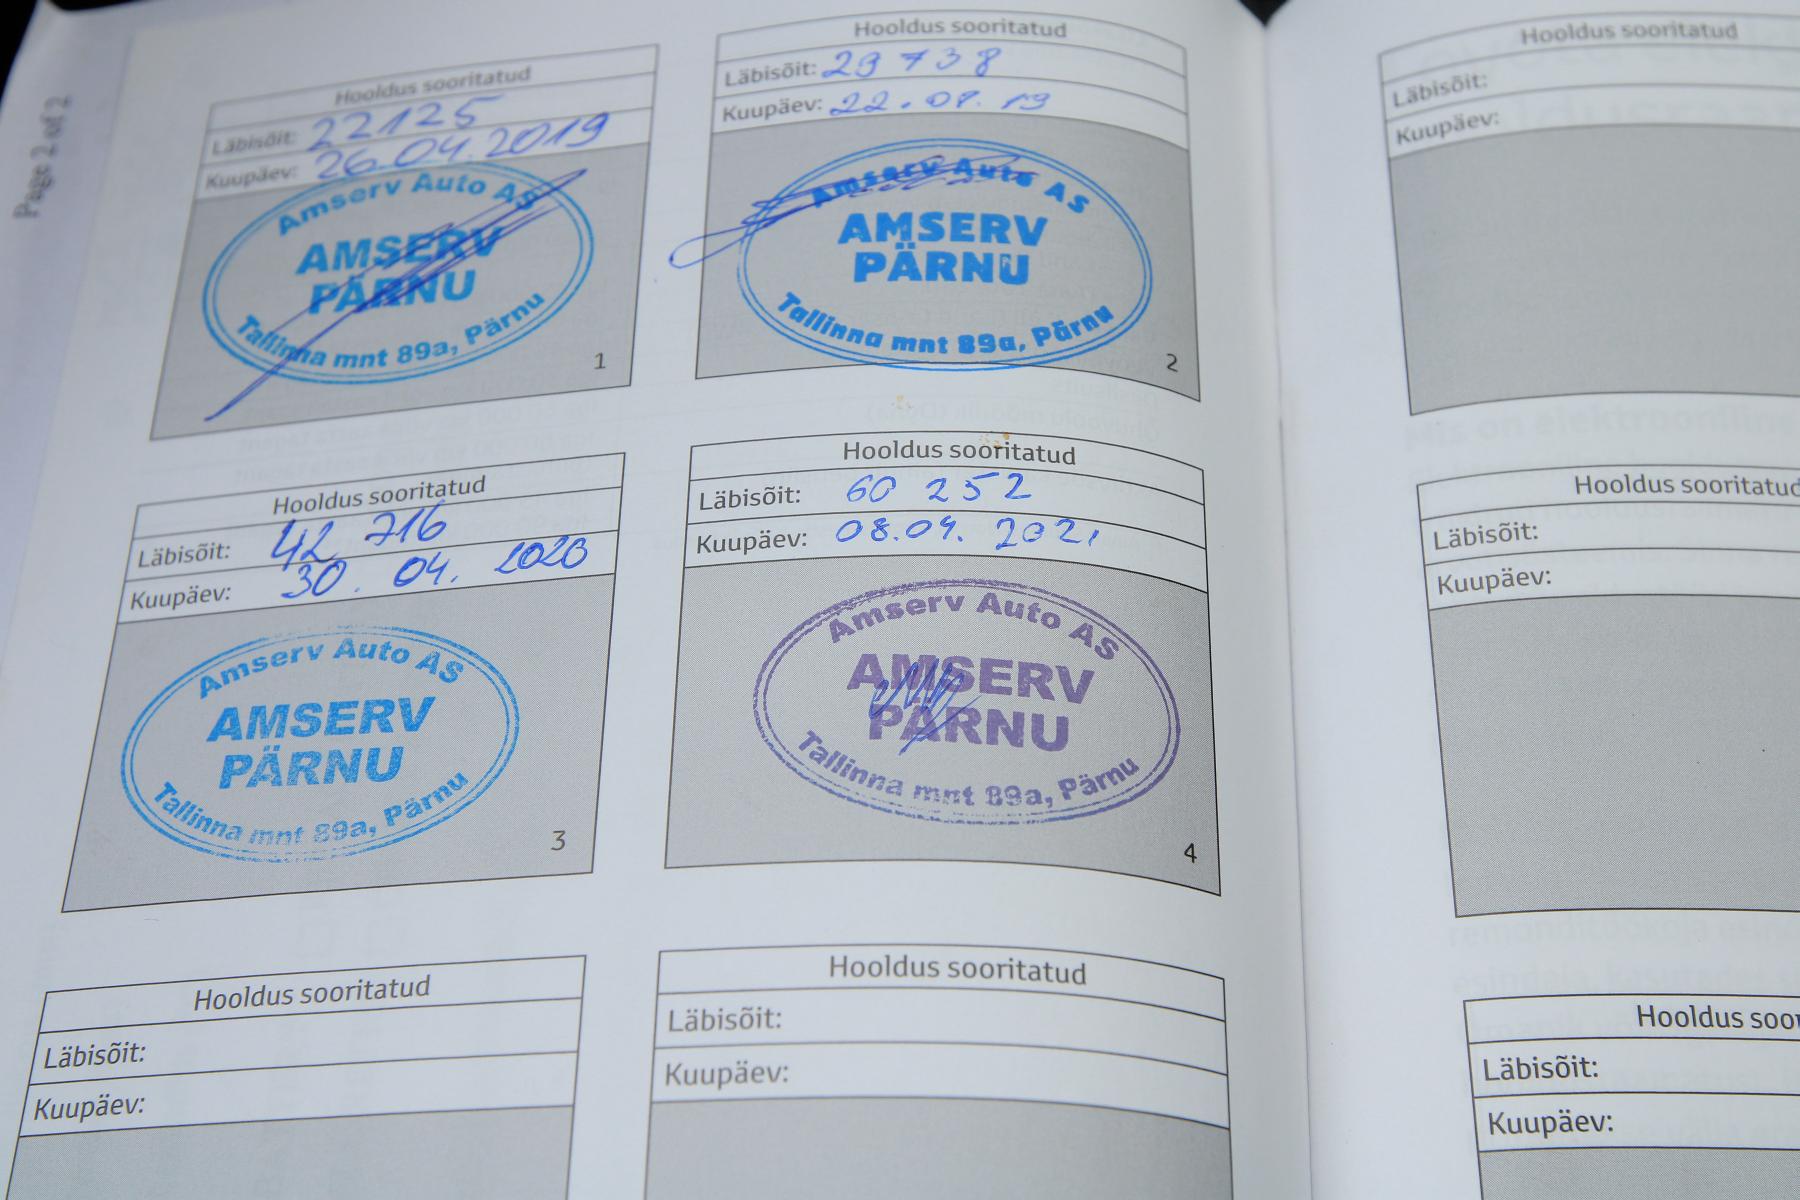 Page 2 of 2
Hooldus sooritatud
Läbisõit: 22125
Kuupäev: 26.04.2019
Amserv Auto AS
AMSERV
PÄRNU
Tallinna mnt 89a, Pärnu
1
Hooldus sooritatud
Läbisõit: 29 738
Kuupäev: 22.08.19
Amserv Auto AS
AMSERV
PÄRNU
Tallinna mnt 89a, Pärnu
2
Hooldus sooritatud
Läbisõit: 42 716
Kuupäev: 30.04.2020
Amserv Auto AS
AMSERV
PÄRNU
Tallinna mnt 89a, Pärnu
3
Hooldus sooritatud
Läbisõit: 60 252
Kuupäev: 08.04.2021
Amserv Auto AS
AMSERV
PÄRNU
Tallinna mnt 89a, Pärnu
4
Hooldus sooritatud
Läbisõit:
Kuupäev:
Hooldus sooritatud
Läbisõit:
Kuupäev:
Hooldus sooritatud
Läbisõit:
Kuupäev:
Hooldus sooritatud
Läbisõit:
Kuupäev:
Hooldus soor
Läbisõit:
Kuupäev: